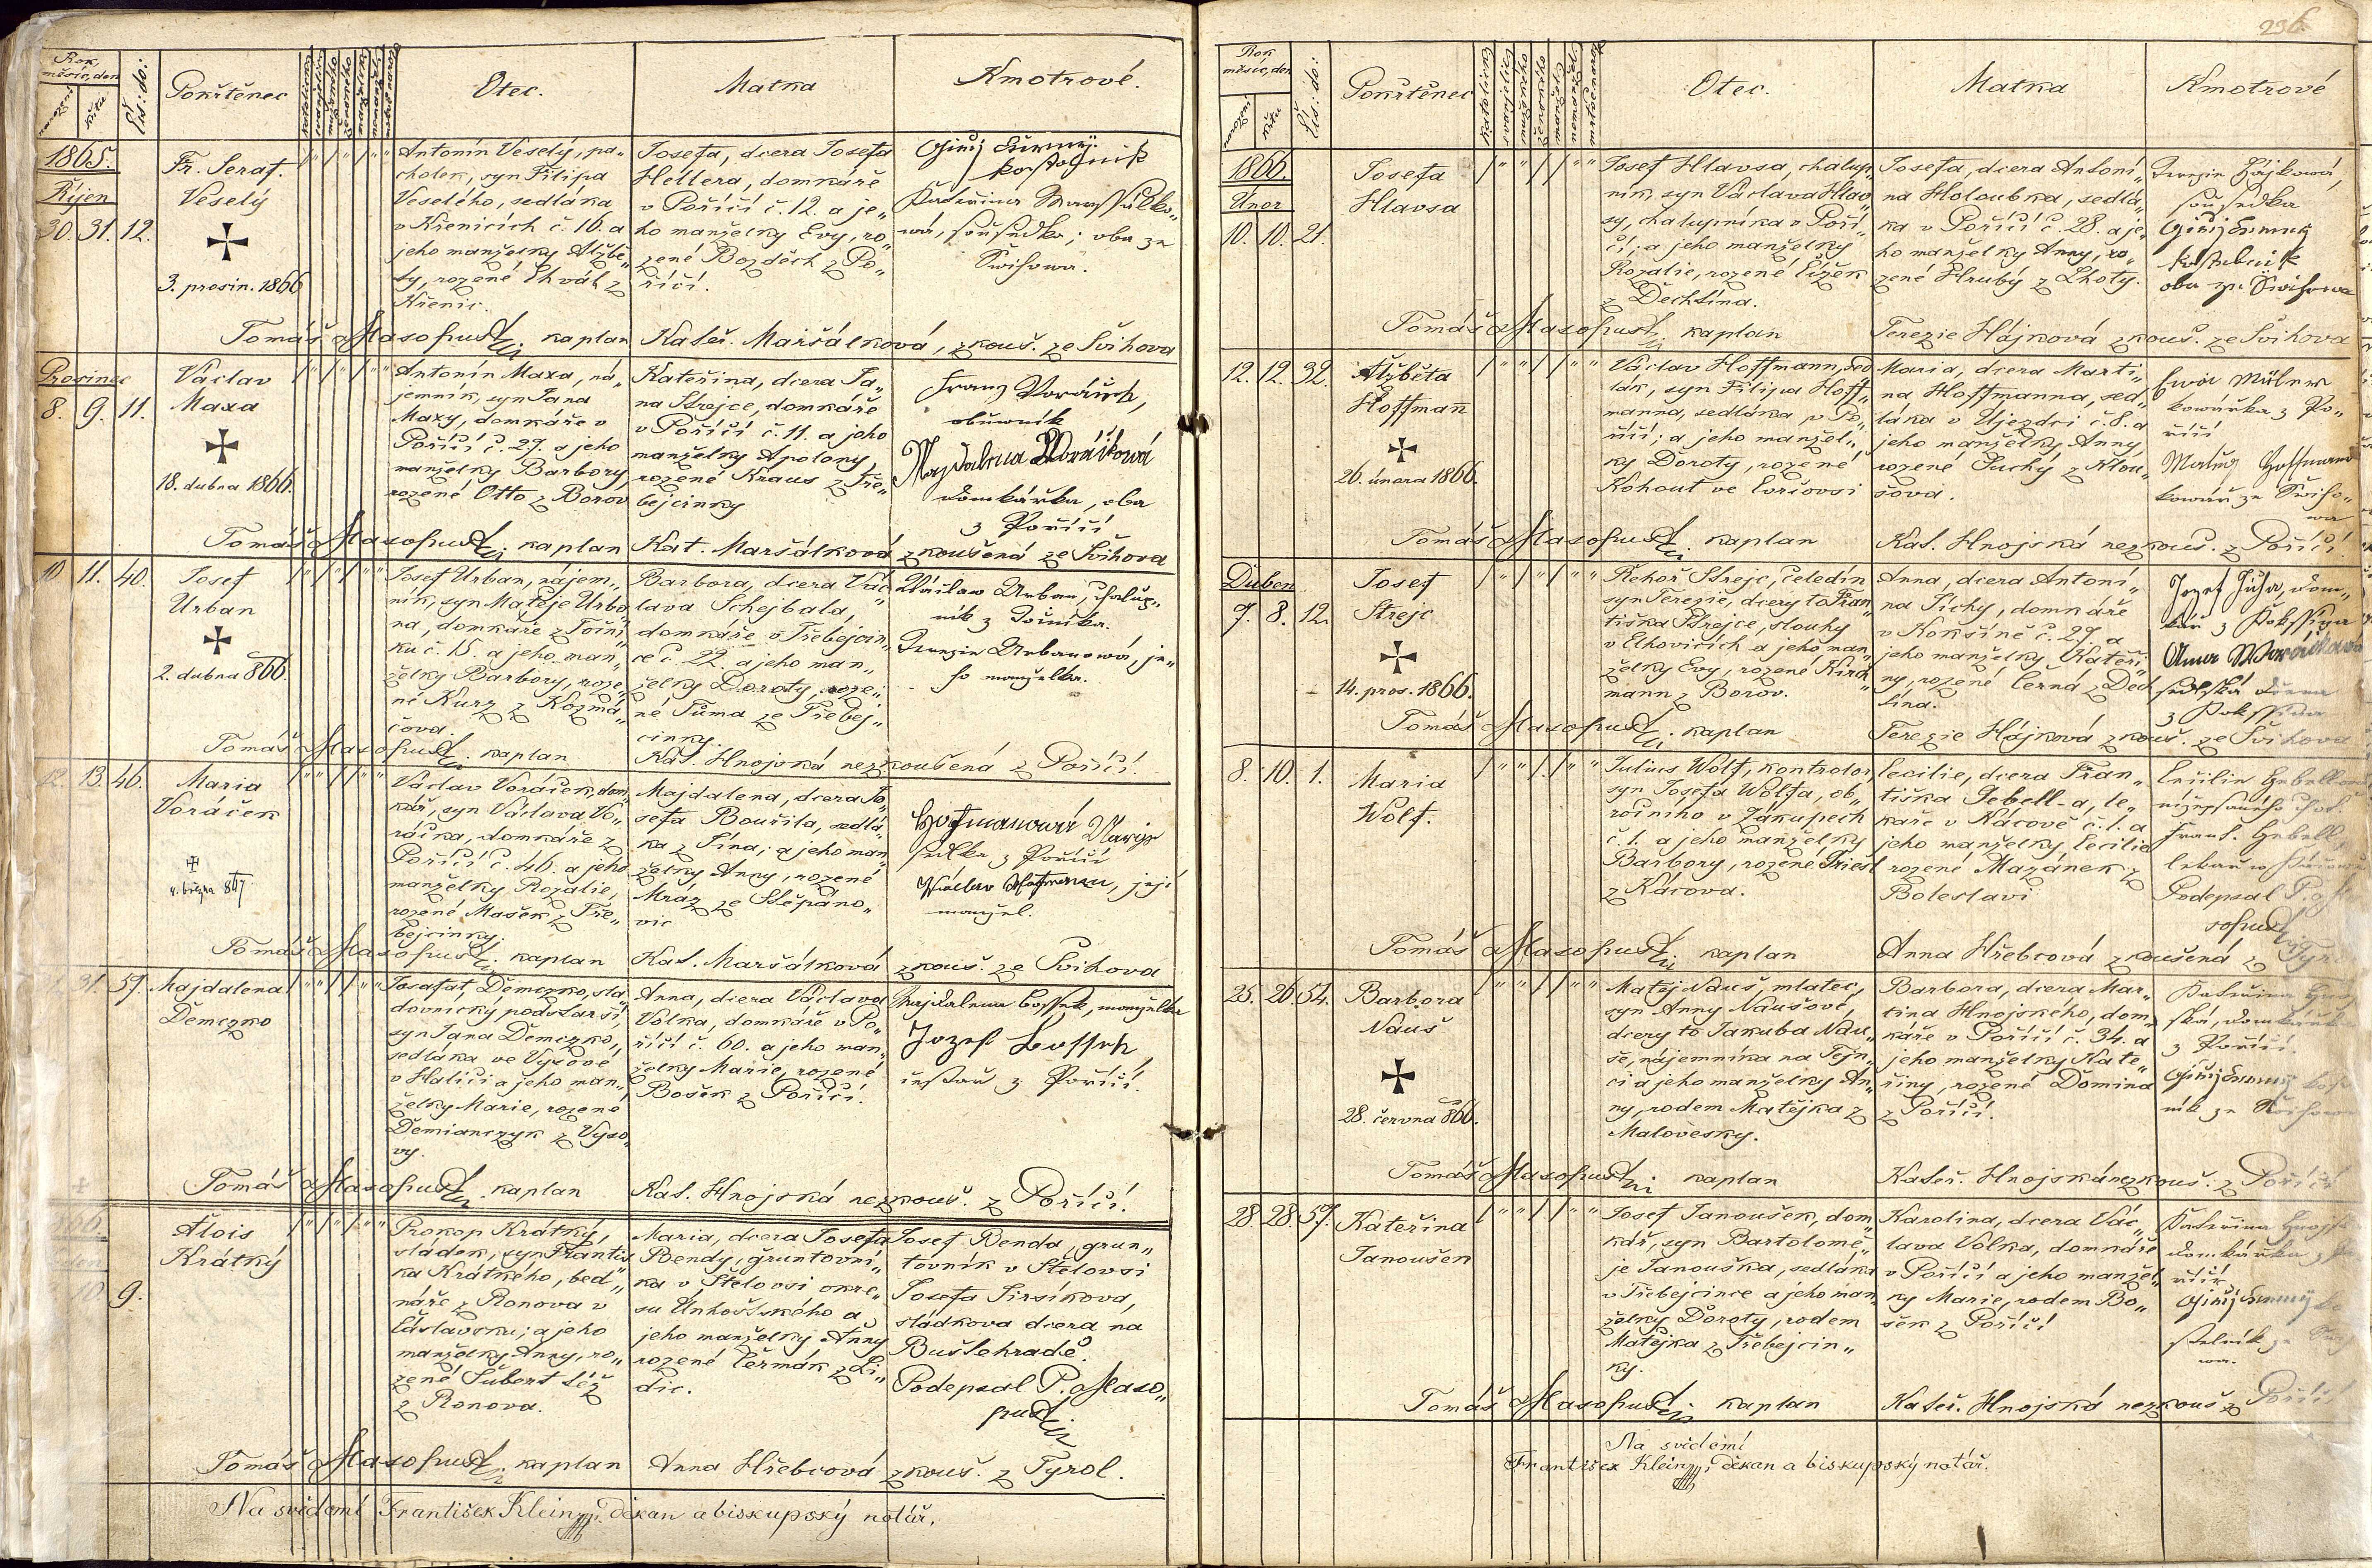 236.
Rok, měsíc, den
narození
křtu
Čís: do:
Pokřtěnec
Otec.
Matka
Kmotrové.
1865.
Říjen
30. 31. 12.
Fr. Seraf.
Veselý
3. prosin. 1866
Antonín Veselý, pa„
cholek, syn Filipa
Veselého, sedláka
v Křenicích č. 16. a
jeho manželky Alžbě„
ty, rozené Chvát z
Křenic.
Josefa, dcera Josefa
Hellera, domkáře
v Poříčí č. 12. a je„
ho manželky Evy, ro„
zené Bozděch z Po„
říčí.
kostelník
sousedka; oba ze
Švihova.
Tomáš Masopust kaplan
Kateř. Maršálková, zkouš. ze Švihova
Prosinec
8. 9. 11.
Václav
Maxa
18. dubna 1866.
Antonín Maxa, ná„
jemník, syn Jana
Maxy, domkáře v
Poříčí č. 27. a jeho
manželky Barbory,
rozené Otto z Borov
Kateřina, dcera Ja„
na Strejce, domkáře
v Poříčí č. 11. a jeho
manželky Apolony,
rozené Kraus z Tře„
bejcinky
Franz Voráček,
obuwník
Magdalena Woráčková
domkářka, oba
z Poříčí
Tomáš Masopust kaplan
Kat. Maršálková zkoušená ze Švihova
10 11. 40.
Josef
Urban
2. dubna 866.
Josef Urban, nájem„
ník, syn Matěje Urba
na, domkáře z Točni
ku č. 15. a jeho man„
želky Barbory, roze„
né Kurz z Kozmá„
čova.
Barbora, dcera Vác„
lava Schejbala,
domkáře v Třebejcin
ce č. 22. a jeho man„
želky Doroty, roze„
né Tůma ze Třebej„
cinky.
Václav Urban, chalup„
ník z Točníka.
Terezie Urbanová, je„
ho manželka.
Tomáš Masopust kaplan
Kat. Hnojská nezkoušená z Poříčí.
12. 13. 46.
Maria
Voráček
4. března 867.
Václav Voráček, dom„
kář, syn Václava Vo„
ráčka, domkáře z
Poříčí č. 46. a jeho
manželky Rozalie,
rozené Mašek z Tře„
bejcinky.
Majdalena, dcera Jo„
sefa Bouřila, sedlá„
ka z Týna; a jeho man„
želky Anny, rozené
Mráz ze Štěpáno„
vic
Hofmanová Marije
sedlka z Poříčí
Václav Hofmann, její
manžel.
Tomáš Masopust kaplan
Kat. Maršálková zkouš. ze Švihova
31. 57.
Majdalena
Demczko
Josafat Demczko, sla„
dovnický podstarší,
syn Jana Demczko,
sedláka ve Vysové
v Haliči a jeho man„
želky Marie, rozené
Demianczyk z Vyso„
vy.
Anna, dcera Václava
Volka, domkáře v Po„
říčí č. 60. a jeho man„
želky Marie, rozené
Bošek z Poříčí.
Majdalena Boššek, manželka
Jozef Bossek
z Poříčí.
Tomáš Masopust kaplan
Kat. Hnojská nezkouš. z Poříčí.
10 9.
Alois
Krátký
Prokop Krátký,
sládek, syn Františ
ka Krátkého, bed„
náře z Ronova v
Čáslavsku; a jeho
manželky Anny, ro„
zené Šubert též
z Ronova.
Maria, dcera Josefa
Bendy, gruntovní„
ka v Stelovsi okre„
su Unhoštského a
jeho manželky Anny
rozené Čermák z Li„
dic.
Josef Benda, grun„
tovník v Stelovsi
Josefa Jirsíkova,
sládkova dcera na
Buštehradě.
Podepsal P. Maso„
pust
Tomáš Masopust kaplan
Anna Hřebcová zkouš. z Tyrol.
Na svědomí František Klein, děkan a biskupský notář.
Rok měsíc, den
narození
křtu
Čís: do:
Pokřtěnec
Otec.
Matka
Kmotrové
1866.
Únor
10. 10. 21.
Josefa
Hlavsa
Josef Hlavsa, chalup„
ník, syn Václava Hlav„
sy, chalupníka v Poří„
čí; a jeho manželky
Rozalie, rozené Čížek
z Dechtína.
Josefa, dcera Antoní„
na Holoubka, sedlá„
ka v Poříčí č. 28. a je„
ho manželky Anny, ro„
zené Hrubý z Lhoty.
Terezie Hájková,
sousedka
kostelník
oba ze Švihova
Tomáš Masopust kaplan
Terezie Hájková zkouš. ze Švihova
12. 12. 32.
Alžběta
Hoffmann
26. února 1866.
Václav Hoffmann, sed
lák, syn Filipa Hoff„
manna, sedláka v Po„
říčí; a jeho manžel„
ky Doroty, rozené
Kohout ve Lvčovsi
Maria, dcera Marti„
na Hoffmanna, sed„
láka v Újezdci č. 8. a
jeho manželky Anny,
rozené Suchý z Klou„
šova.
kovářka z Po„
říčí
Matěj Hoffmann
kovář ze Šviho„
va
Tomáš Masopust kaplan
Kat. Hnojská nezkouš. z Poříčí.
Duben
7. 8. 12.
Josef
Strejc
14. pros. 1866.
Řehoř Strejc, čeledín
syn Terezie, dcery to Fran„
tiška Strejce, slouhy
v Elhovicích a jeho man„
želky Evy, rozené Kirch„
mann z Borov.
Anna, dcera Antoní„
na Tichy, domkáře
v Kokšíně č. 27. a
jeho manželky Kateři„
ny, rozené Černá z Dech
tína.
dom„
kář z Kokssina
Anna Woráčková
selská dcera
z Kokssina
Tomáš Masopust kaplan
Terezie Hájková zkouš. ze Švihova
8. 10. 1.
Maria
Wolf.
Julius Wolf, kontrolor
syn Josefa Wolfa, ob„
ročního v Zákupech
č. 1. a jeho manželky
Barbory, rozené Triest
z Kácova.
Cecilie, dcera Fran„
tiška Gebell-a, le„
kaře v Kácově č. 1. a
jeho manželky Cecilie
rozené Mazánek z
Boleslavi
Frant. Gebell,
Podepsal P. Ma
sopust
Tomáš Masopust kaplan
Anna Hřebcová zkoušená z Tyrol
25. 26. 54.
Barbora
Nauš
28. června 866.
Matěj Nauš, mlatec,
syn Anny Naušové,
dcery to Jakuba Nau„
še, nájemníka na Tejn„
ci a jeho manželky An„
ny, rodem Matějka z
Malovesky.
Barbora, dcera Mar„
tina Hnojského, dom„
káře v Poříčí č. 34. a
jeho manželky Kate„
řiny, rozené Domina
z Poříčí.
Kateřina Hnoj
ská, domkářka
z Poříčí.
ník ze Švihova
Tomáš Masopust kaplan
Kateř. Hnojská nezkouš. z Poříčí
28. 28. 57.
Kateřina
Janoušek
Josef Janoušek, dom„
kář, syn Bartolomě„
je Janouška, sedláka
v Třebejcince a jeho man„
želky Doroty, rodem
Matějka z Třebejcin„
ky.
Karolina, dcera Vác„
lava Volka, domkáře
v Poříčí a jeho manžel„
ky Marie, rodem Bo„
šek z Poříčí
Kateřina Hnojs
domkářka z Po
říčí
stelník ze Švi
Tomáš Masopust kaplan
Kateř. Hnojská nezkouš z Poříčí
Na svědomí
František Klein, děkan a biskupský notář.